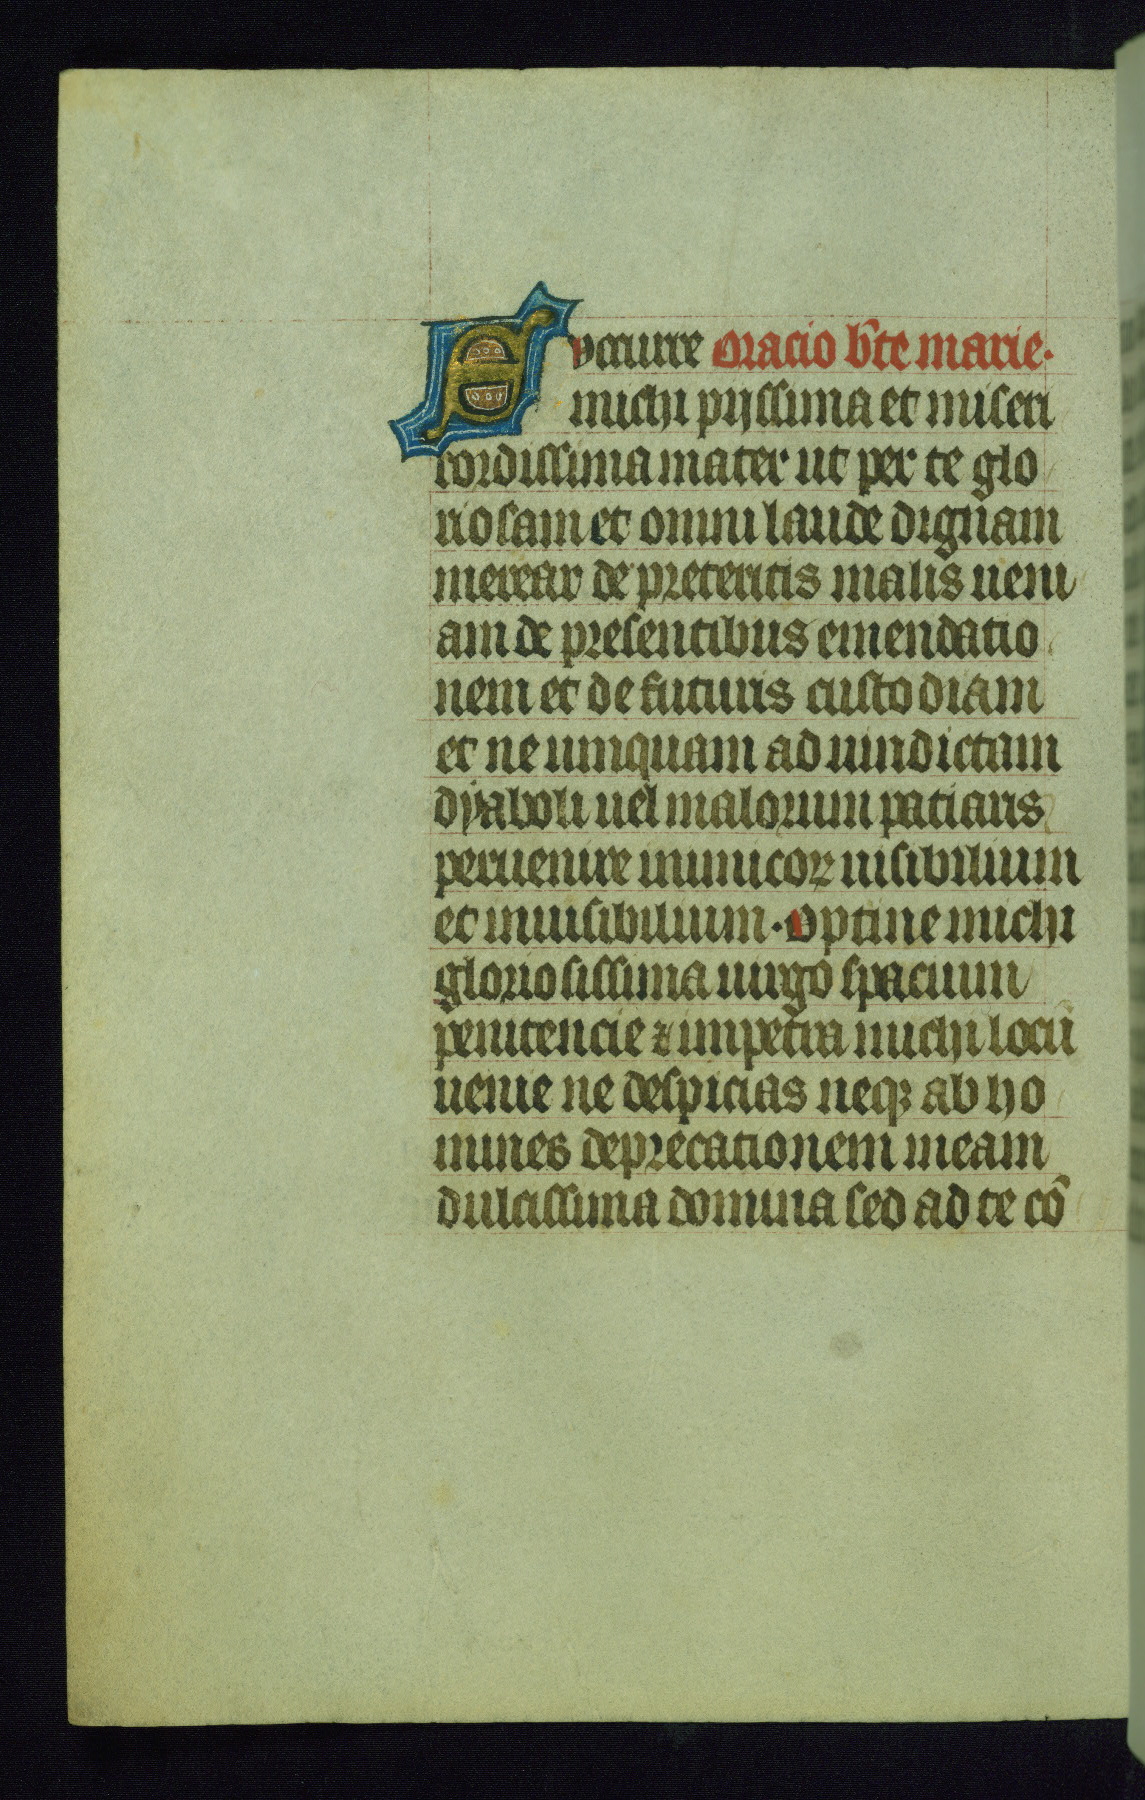 Succurre Oracio b̃te marie.
michi pijssima et miseri
cordissima mater ut per te glo
riosam et omni laude dignam
merear de preteritis malis ueni
am de presentibus emendatio
nem et de futuris custodiam
et ne umquam ad uindictam
dyaboli uel malorum patiaris
peruenire inimicoꝝ uisibilium
et inuisibilium. Optine michi
gloriosissima uirgo spacium
penitencie ⁊ impetra michi locū
uenie ne despicias neqꝫ ab ho
mines deprecationem meam
dulcissima domina sed ad te cō